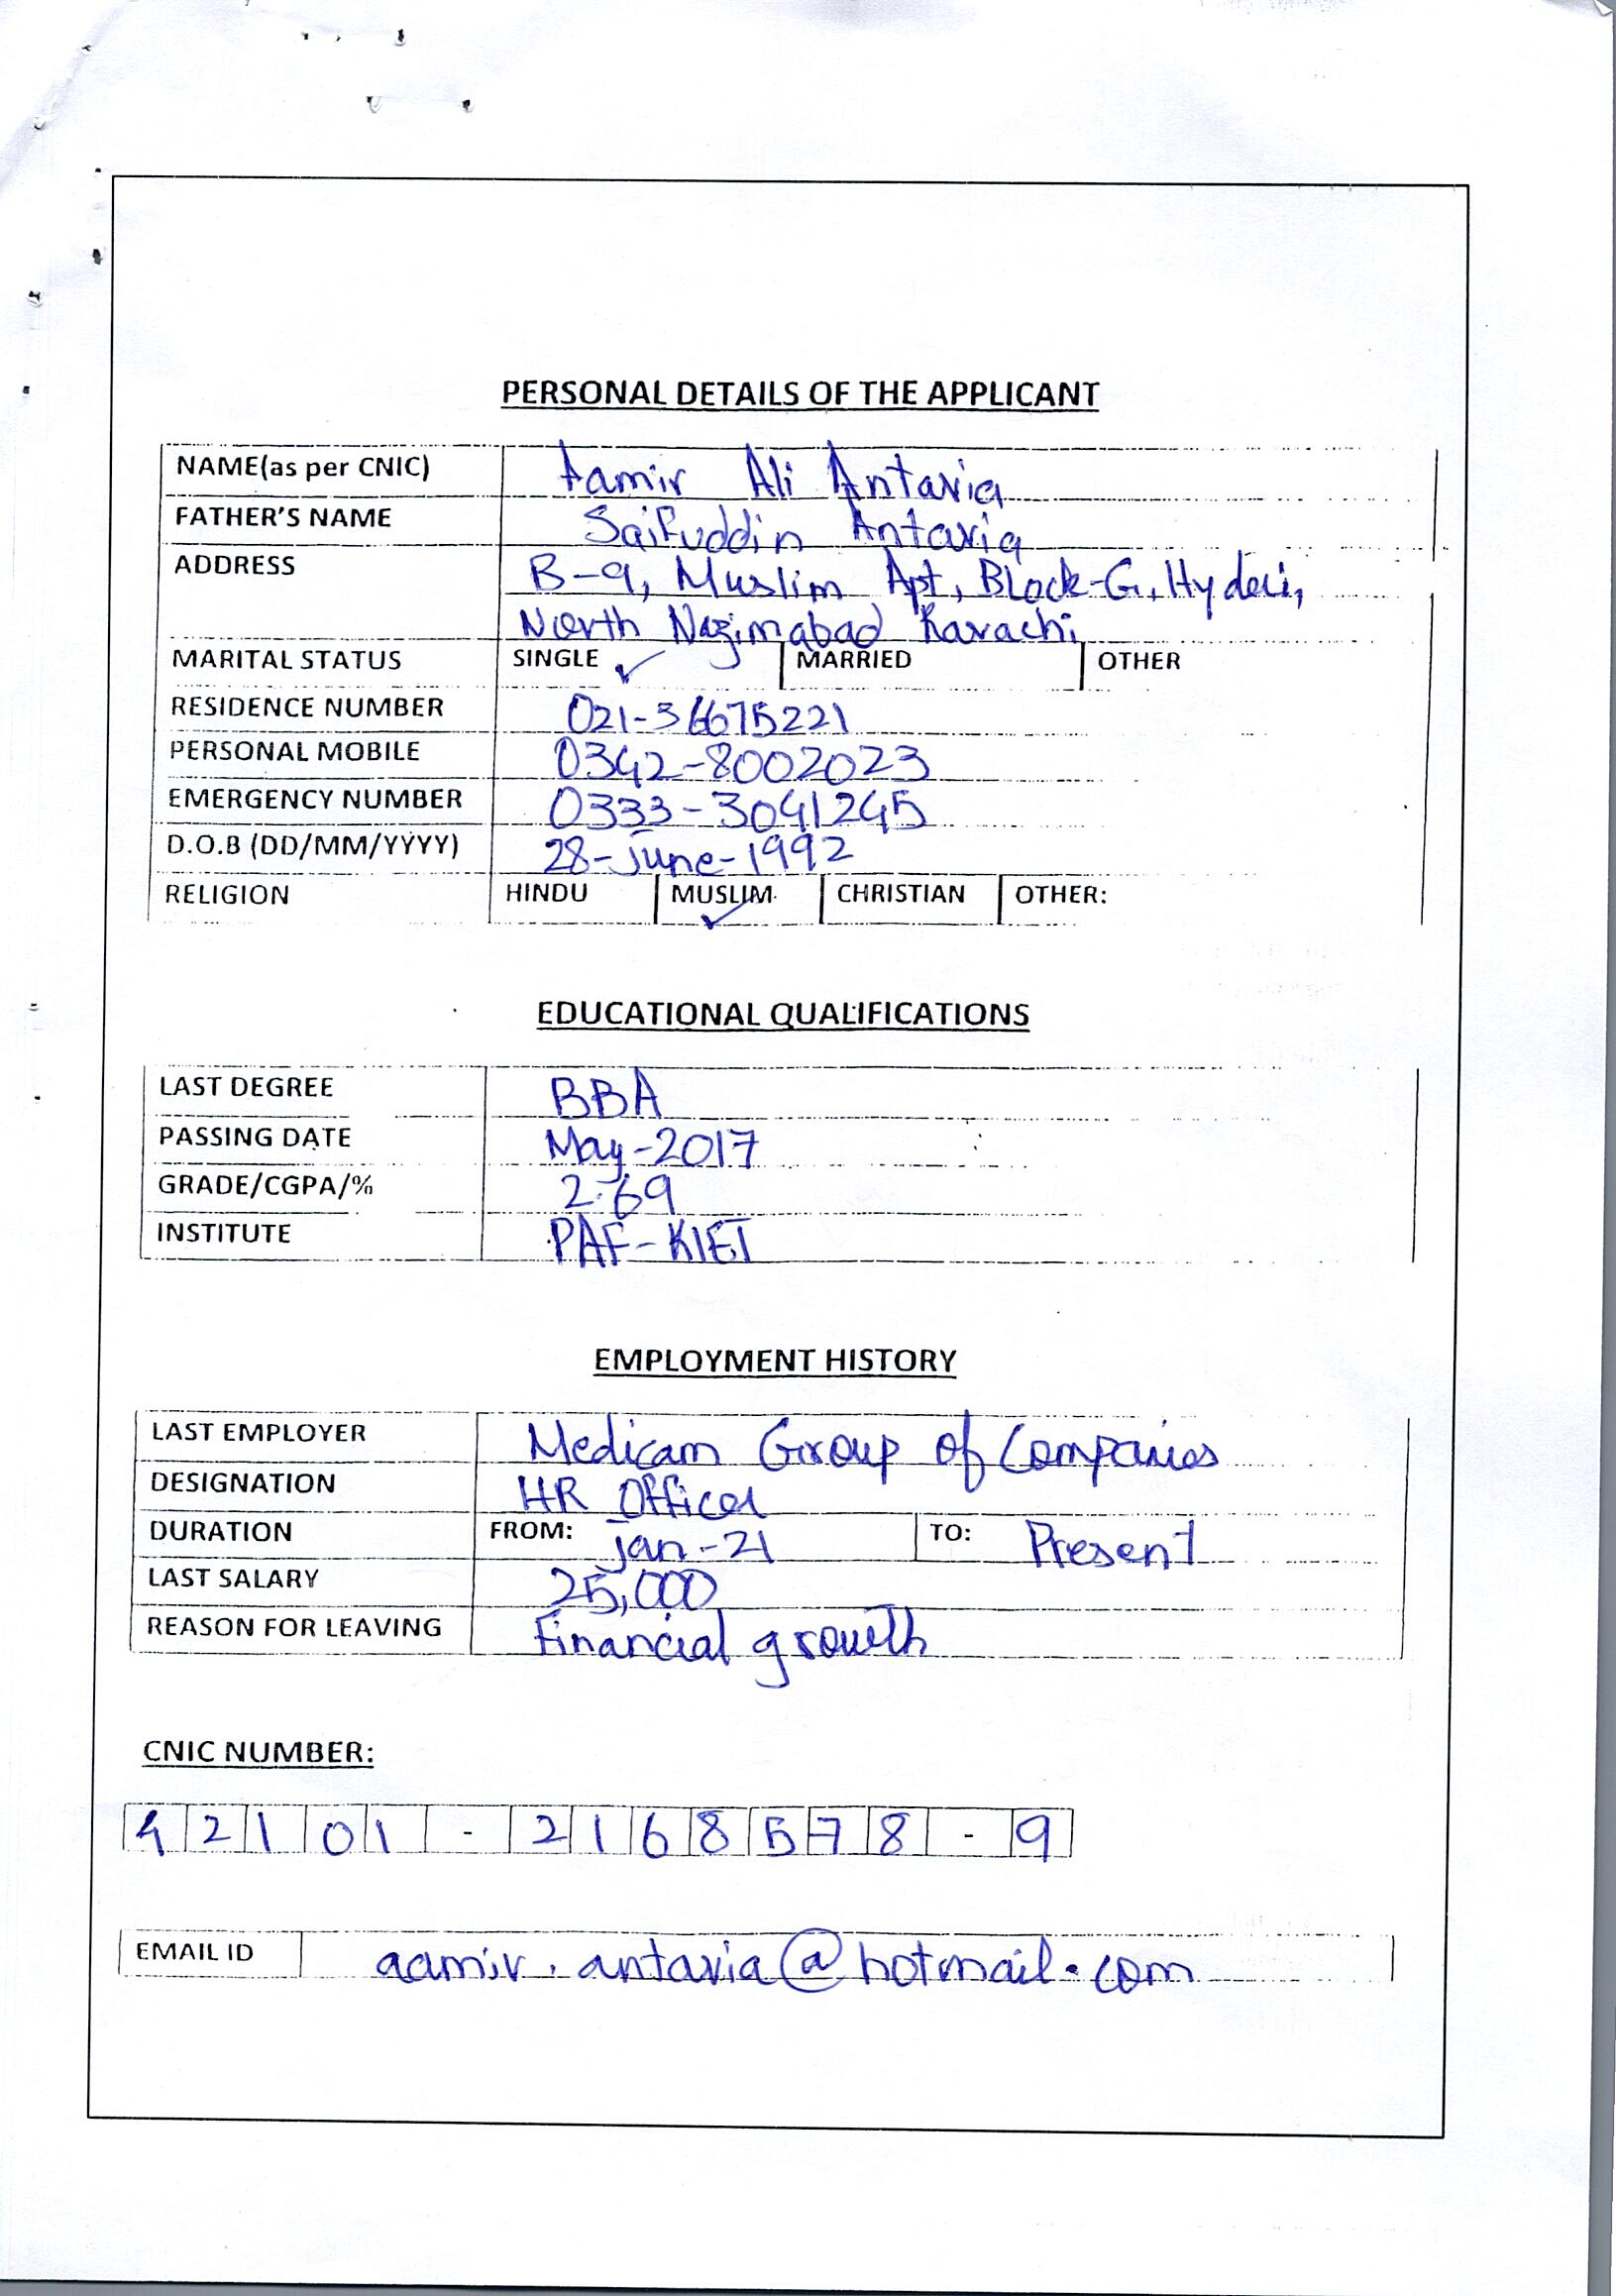 PERSONAL DETAILS OF THE APPLICANT
NAME(as per CNIC) Aamir Ali Antaria
FATHER'S NAME Saifuddin Antaria
ADDRESS B-9, Muslim Apt, Block-G, Hyderi,
North Nazimabad Karachi
MARITAL STATUS SINGLE ✓ MARRIED OTHER
RESIDENCE NUMBER 021-36675221
PERSONAL MOBILE 0342-8002023
EMERGENCY NUMBER 0333-3041245
D.O.B (DD/MM/YYYY) 28-June-1992
RELIGION HINDU MUSLIM ✓ CHRISTIAN OTHER:
EDUCATIONAL QUALIFICATIONS
LAST DEGREE BBA
PASSING DATE May-2017
GRADE/CGPA/% 2.69
INSTITUTE PAF-KIET
EMPLOYMENT HISTORY
LAST EMPLOYER Medicam Group of Companies
DESIGNATION HR Officer
DURATION FROM: Jan-21 TO: Present
LAST SALARY 25,000
REASON FOR LEAVING Financial growth
CNIC NUMBER:
42101-2168578-9
EMAIL ID aamir.antaria@hotmail.com